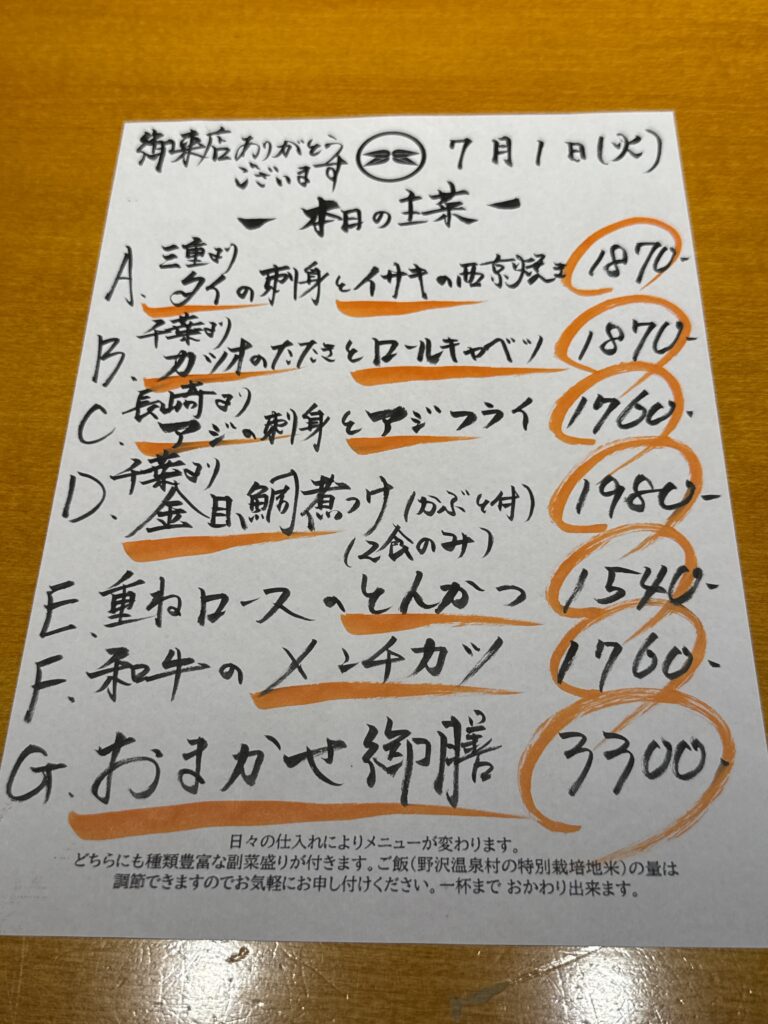 御来店ありがとう
ございます
7月1日(火)
ー 本日の主菜 ー
三重より
A. タイの刺身とイサキの西京焼き 1870-
千葉より
B. カツオのたたきとロールキャベツ 1870-
長崎より
C. アジの刺身とアジフライ 1760-
千葉より
D. 金目鯛煮つけ(かぶと付) 1980-
(2食のみ)
E. 重ねロースのとんかつ 1540-
F. 和牛のメンチカツ 1760-
G. おまかせ御膳 3300-
日々の仕入れによりメニューが変わります。
どちらにも種類豊富な副菜盛りが付きます。ご飯(野沢温泉村の特別栽培地米)の量は
調節できますのでお気軽にお申し付けください。一杯まで おかわり出来ます。